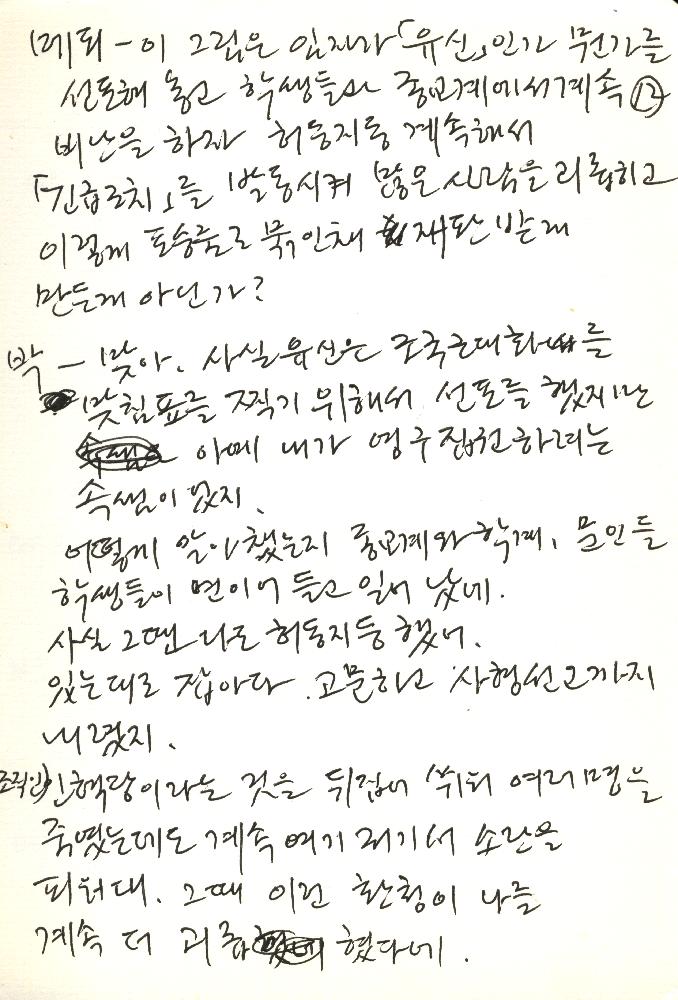 메퇴 - 이 그림은 임자가 「유신」인가 뭔가를
선포해 놓고 학생들과 종교계에서 계속 ⑫
비난을 하자 허둥지둥 계속해서
「긴급조치」를 발동시켜 많은 사람을 괴롭히고
이렇게 포승줄로 묶인채 재판받게
만든게 아닌가?
박 - 맞아. 사실 유신은 조국근대화를
맞침표를 찍기 위해서 선포를 했지만
아예 내가 영구집권하려는
속셈이었지.
어떻게 알아챘는지 종교계와 학계, 문인들
학생들이 면이어 들고 일어 났네.
사실 그땐 나도 허둥지둥 했어.
있는대로 잡아다 고문하고 사형선고까지
내렸지.
조직인 인혁당이라는 것을 뒤집어 씌워 여러명을
죽였는데도 계속 여기 저기서 소란을
피워대. 그때 이런 환청이 나를
계속 더 괴롭혔다네.